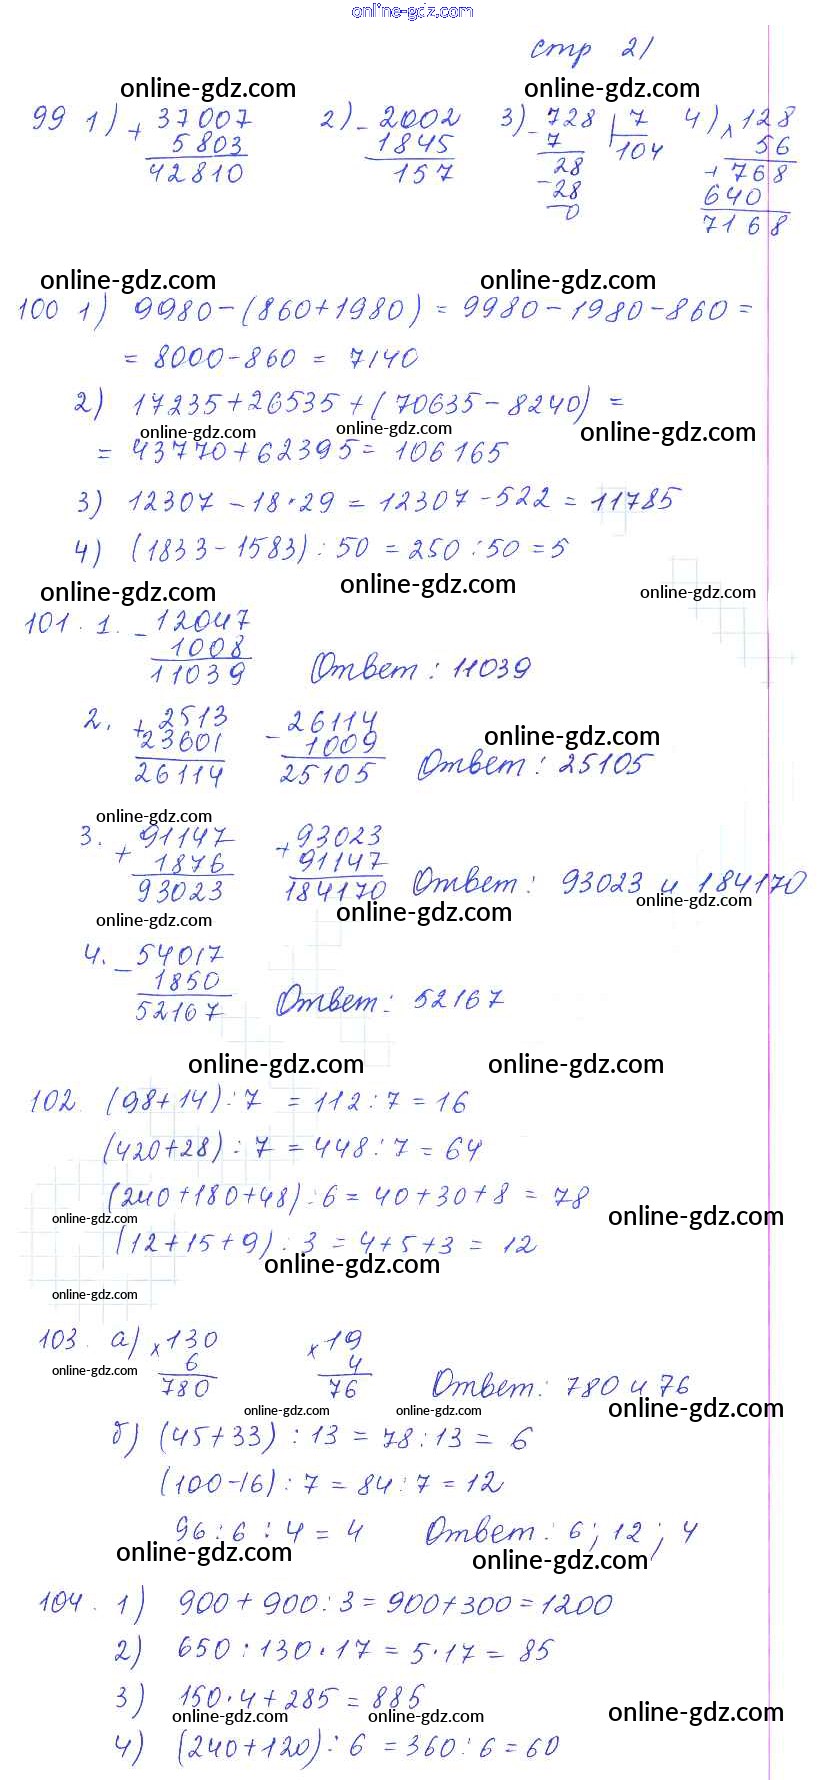 online-gdz.com
стр 21
online-gdz.com online-gdz.com
99 1) + 37007 2) - 2002 3) - 728 | 7 4) × 128
5803 1845 7 104 56
42810 157 28 + 768
- 28 640
0 7168
online-gdz.com online-gdz.com
100 1) 9980-(860+1980) = 9980-1980-860 =
= 8000-860 = 7140
2) 17235+26535+(70635-8240) =
online-gdz.com online-gdz.com online-gdz.com
= 43770+62395= 106165
3) 12307-18·29 = 12307-522 = 11785
4) (1833-1583):50 = 250:50 =5
online-gdz.com online-gdz.com online-gdz.com
101. 1. - 12047
1008
11039 Ответ: 11039
2. + 2513 - 26114
23601 1009 online-gdz.com
26114 25105 Ответ: 25105
online-gdz.com
3. + 91147 + 93023
1876 91147
93023 184170 Ответ: 93023 и 184170
online-gdz.com online-gdz.com online-gdz.com
4. - 54017
1850
52167 Ответ: 52167
online-gdz.com online-gdz.com
102. (98+14):7 = 112:7 = 16
(420+28):7 = 448:7 = 64
(240+180+48):6 = 40+30+8 = 78
online-gdz.com online-gdz.com
(12+15+9):3 = 4+5+3 = 12
online-gdz.com
online-gdz.com
103. а) × 130 × 19
6 4
online-gdz.com
780 76 Ответ: 780 и 76
online-gdz.com online-gdz.com online-gdz.com
б) (45+33):13 = 78:13 = 6
(100-16):7 = 84:7 = 12
96:6:4 = 4 Ответ: 6; 12; 4
online-gdz.com online-gdz.com
104. 1) 900+900:3 = 900+300 = 1200
2) 650:130·17 = 5·17 = 85
3) 150·4+285 = 885
online-gdz.com online-gdz.com online-gdz.com
4) (240+120):6 = 360:6 = 60